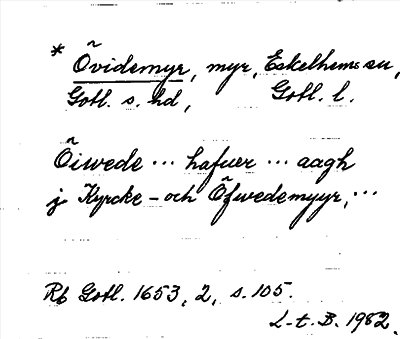 * Õvidemyr, myr, Eskelhems sn,
Gotl. s. hd, Gotl. l.
Õiwede ... hafuer ... aagh
j Kyrcke - och Õfwedemyyr, ...
Rb Gotl. 1653, 2, s. 105.
L-t. B. 1982.